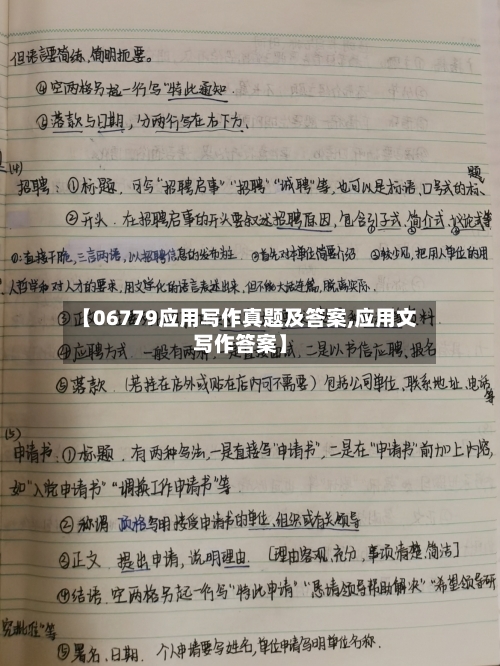 但语言要简练,简明扼要。
④空两格另起一行写"特此通知
⑤落款与日期,分两行写在右下方.
(14)
招聘:①标题,可写"招聘启事""招聘""诚聘"等,也可以是标语、口号式的标题
②开头.在招聘启事的开头要叙述招聘原因,包含引子式.简介式.议论式等
①:直接干脆,三言两语,以招聘信息的发布为主 ②首先对本单位简要介绍 ③较少见,把用人单位的用
人哲学和对人才的要求,用文学化的语言表述出来,但不能大话连篇,脱离实际.
③正
料
【06779应用写作真题及答案,应用文
写作答案】
④应聘方式.一般有两
试,二是以书信应聘、报名
⑤落款.(若挂在店外或贴在店内可不需要)包括公司单位、联系地址、电话等
(15)
申请书:①标题.有两种写法,一是直接写"申请书",二是在"申请书"前加上内容,
如"入党申请书""调换工作申请书"等
②称谓 顶格写明接受申请书的单位、组织或有关领导
③正文.提出申请,说明理由. [理由客观、充分,事项清楚、简洁]
④结语.空两格另起一行写"特此申请""恳请领导帮助解决""希望领导研
究批准"等
⑤署名、日期. 个人申请要写姓名,单位申请写明单位名称.